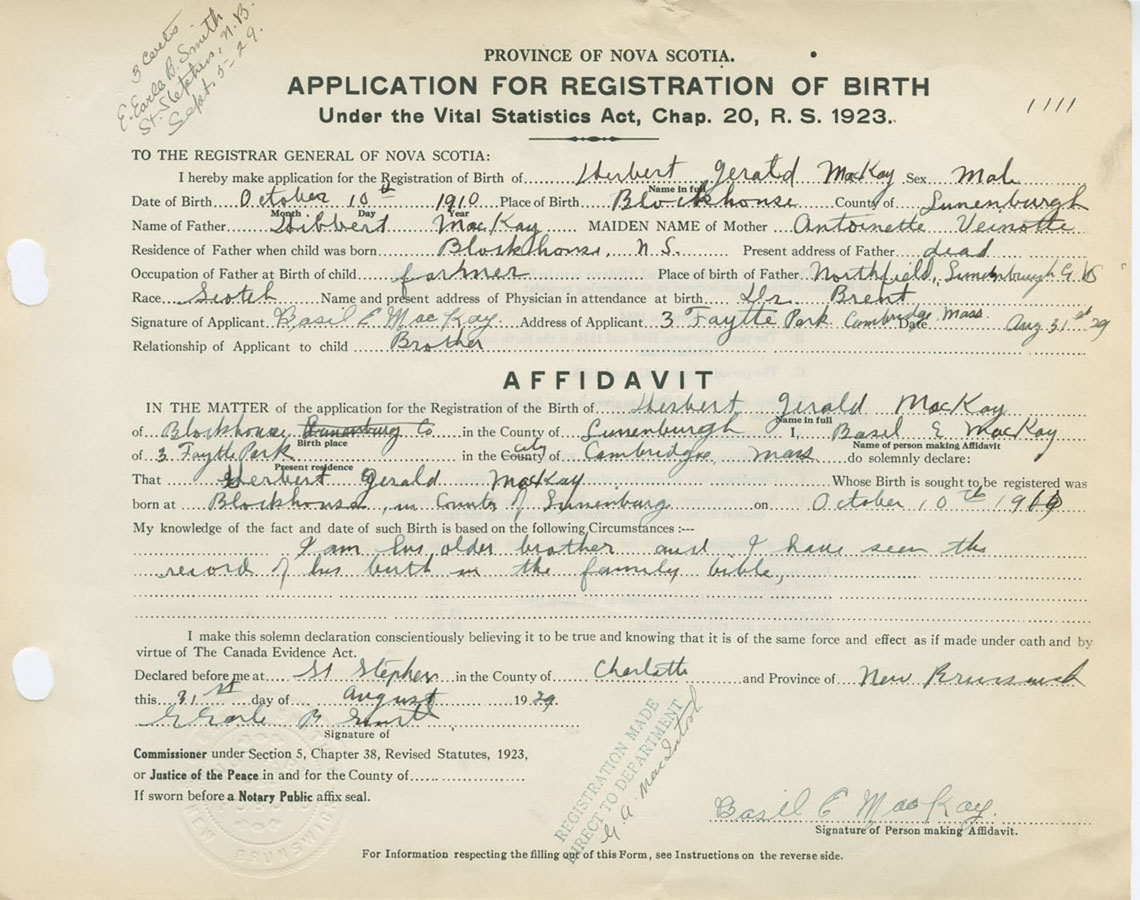 3 Certs
E. Earle B. Smith
St. Stephen, N.B.
Sept. 5-29.
PROVINCE OF NOVA SCOTIA.
APPLICATION FOR REGISTRATION OF BIRTH
1111
Under the Vital Statistics Act, Chap. 20, R. S. 1923.
TO THE REGISTRAR GENERAL OF NOVA SCOTIA:
I hereby make application for the Registration of Birth of Herbert Gerald MacKay Sex Male
Name in full
Date of Birth October 10th 1910 Place of Birth Blockhouse County of Lunenburgh
Month Day Year
Name of Father Hibbert MacKay MAIDEN NAME of Mother Antoinette Veinotte
Residence of Father when child was born Blockhouse, N.S. Present address of Father dead
Occupation of Father at Birth of child farmer Place of birth of Father Northfield, Lunenburgh Co. NS
Race Scotch Name and present address of Physician in attendance at birth Dr. Brent
Signature of Applicant Basil E MacKay Address of Applicant 3 Faytte Park Cambridge Mass. Date Aug. 31st 29
Relationship of Applicant to child Brother
AFFIDAVIT
IN THE MATTER of the application for the Registration of the Birth of Herbert Gerald MacKay
Name in full
of Blockhouse Lunenburg Co in the County of Lunenburgh I, Basil E MacKay
Birth place Name of person making Affidavit
of 3 Faytte Park in the County City of Cambridge, Mass do solemnly declare:
Present residence
That Herbert Gerald MacKay Whose Birth is sought to be registered was
born at Blockhouse, in County of Lunenburg on October 10th 1910
My knowledge of the fact and date of such Birth is based on the following Circumstances :--
I am his older brother and I have seen the
record of his birth in the family bible,
I make this solemn declaration conscientiously believing it to be true and knowing that it is of the same force and effect as if made under oath and by
virtue of The Canada Evidence Act.
Declared before me at St Stephen in the County of Charlotte and Province of New Brunswick
this 31st day of August 1929.
E Earle B Smith
Signature of
Commissioner under Section 5, Chapter 38, Revised Statutes, 1923,
or Justice of the Peace in and for the County of
If sworn before a Notary Public affix seal.
NEW BRUNSWICK
REGISTRATION MADE
DIRECT TO DEPARTMENT
G A MacIntosh
Basil E MacKay.
Signature of Person making Affidavit.
For Information respecting the filling out of this Form, see Instructions on the reverse side.